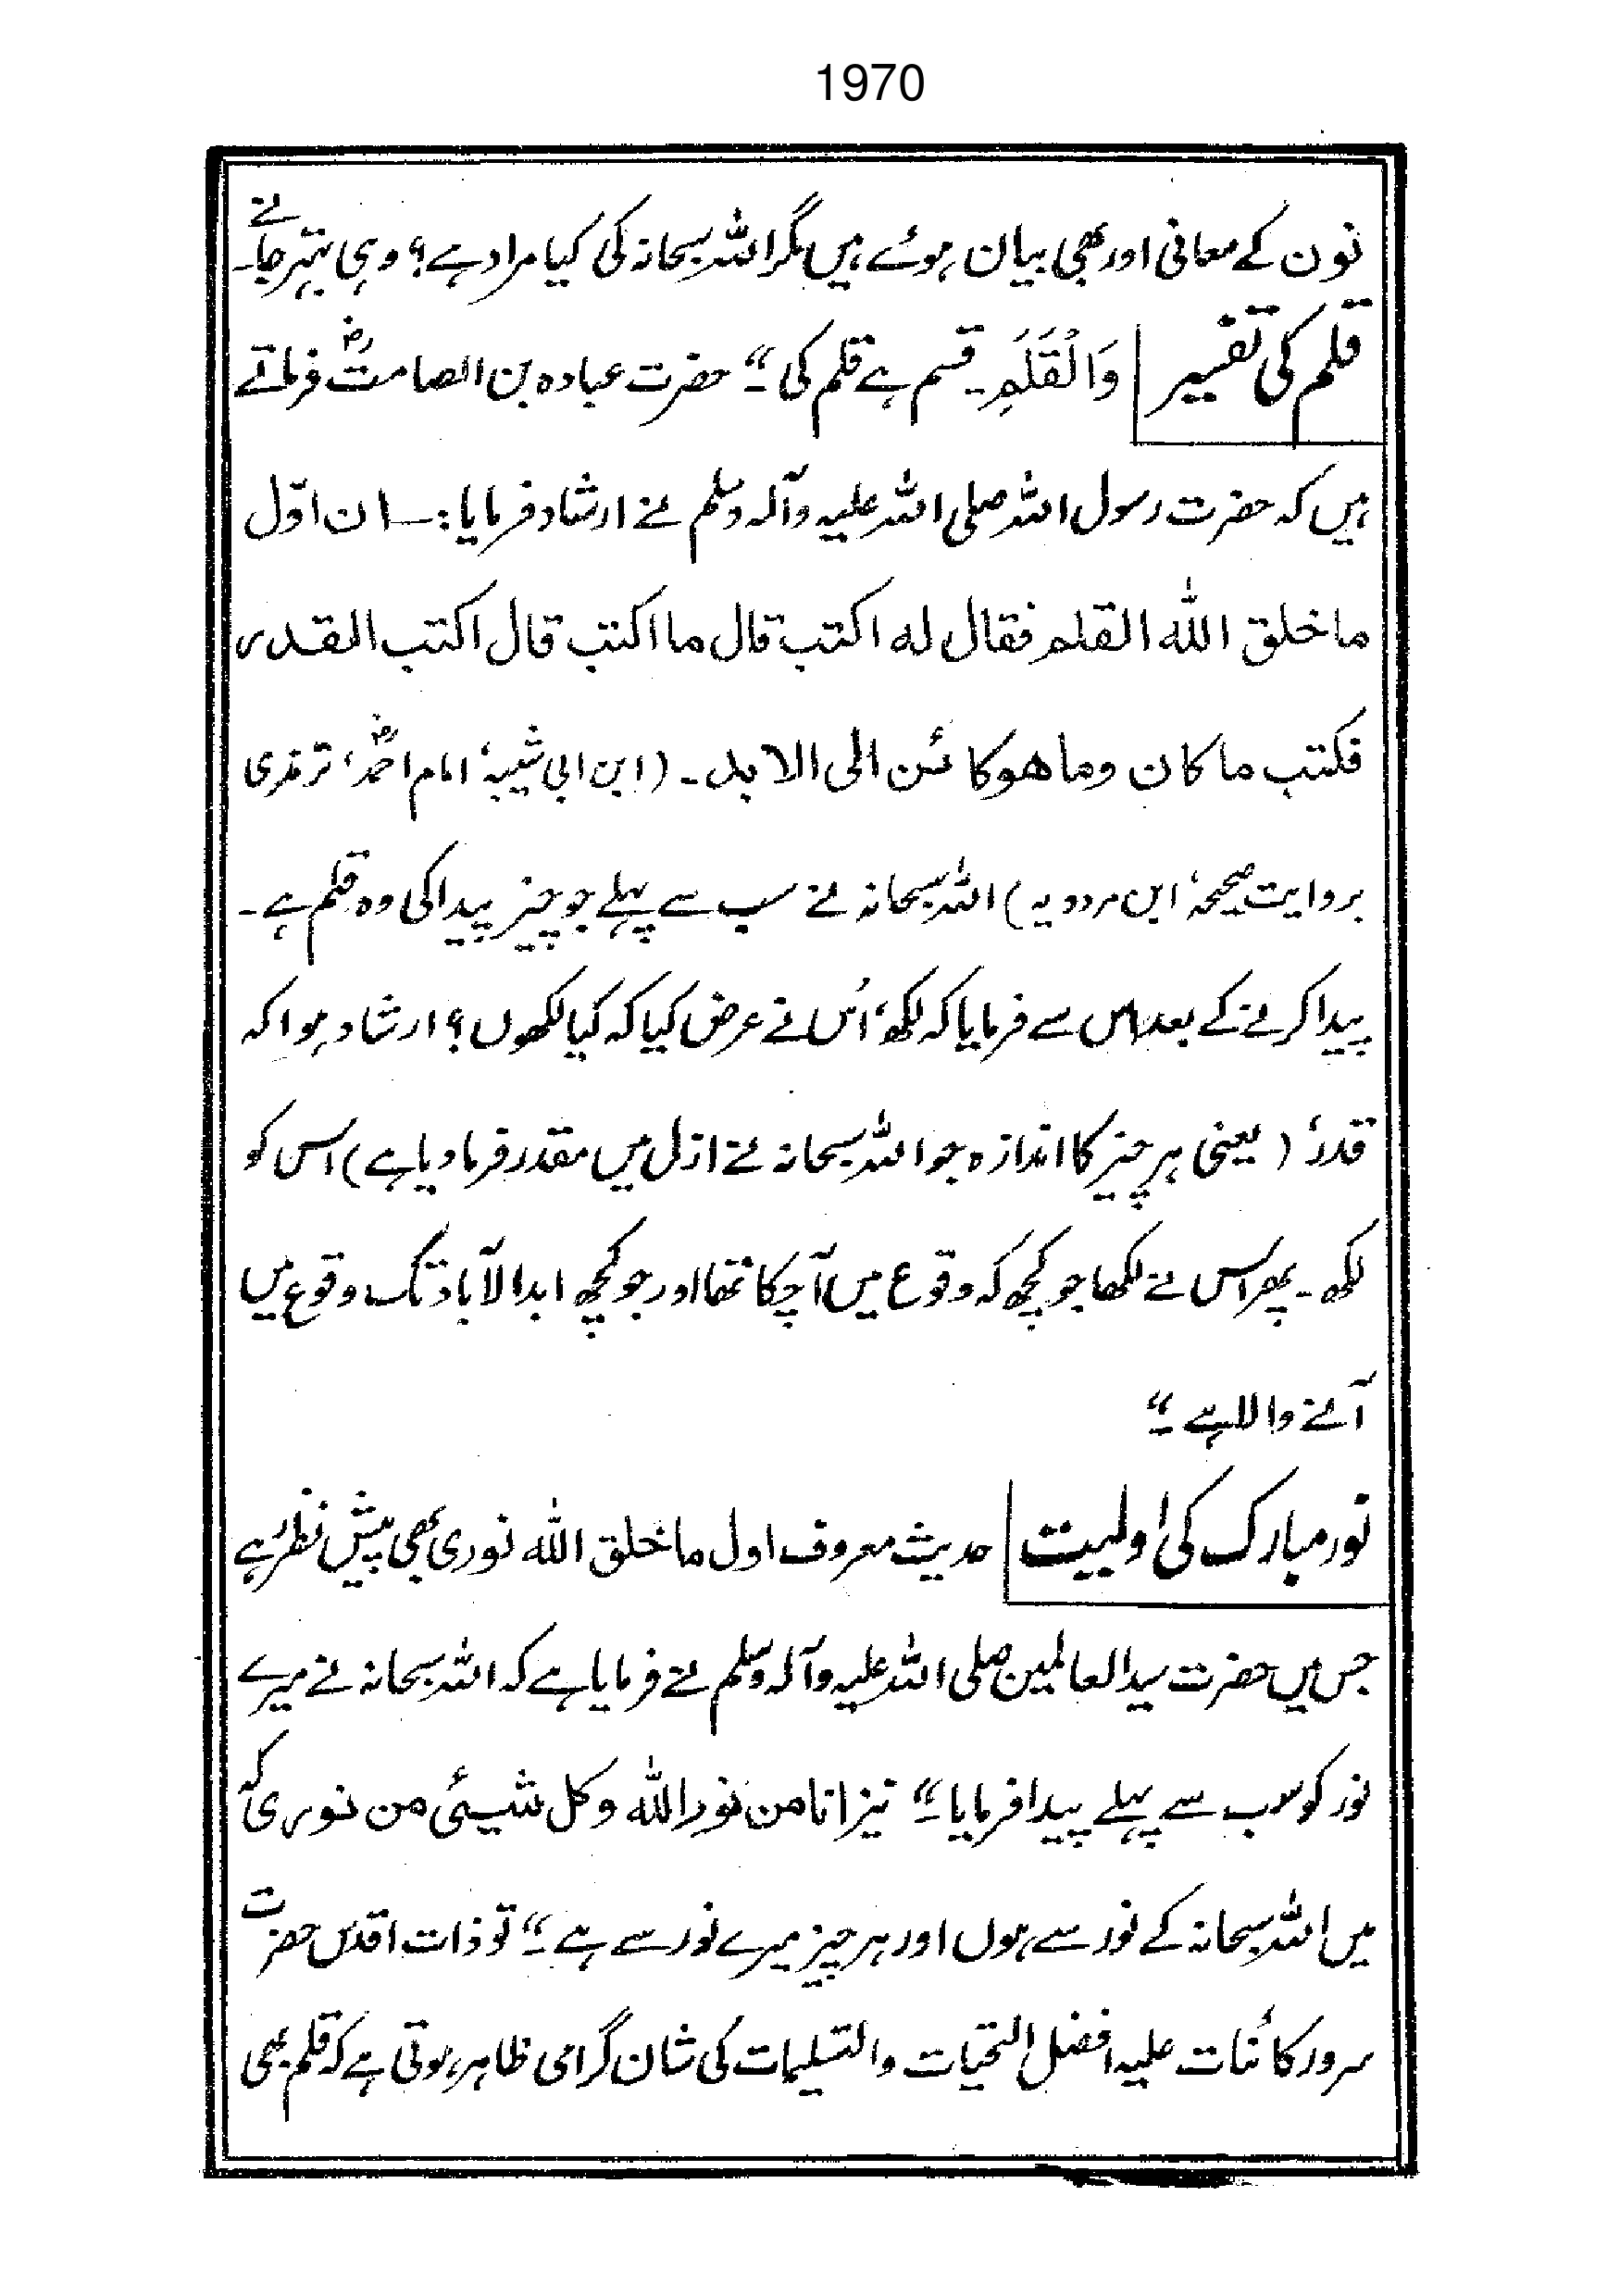 1970
نون کے معانی اور بھی بیان ہوئے ہیں مگر اللہ سبحانہ کی کیا مراد ہے؟ وہی بہتر جانے۔
قلم کی تفسیر وَالْقَلَمِ۔ قسم ہے قلم کی۔" حضرت عبادہ بن الصامتؓ فرماتے
ہیں کہ حضرت رسول اللہ صلی اللہ علیہ وآلہ وسلم نے ارشاد فرمایا:۔ ان اوّل
ما خلق اللہ القلم فقال له اکتب قال ما اکتب قال اکتب القدر
فکتب ما کان وما هو کائن الی الابد۔ (ابن ابی شیبہ، امام احمدؓ، ترمذی
بروایت صحیحہ، ابن مردویہ) اللہ سبحانہ نے سب سے پہلے جو چیز پیدا کی وہ قلم ہے۔
پیدا کرنے کے بعد اس سے فرمایا کہ لکھ، اُس نے عرض کیا کہ کیا لکھوں؟ ارشاد ہوا کہ
قدر، (یعنی ہر چیز کا اندازہ جو اللہ سبحانہ نے ازل میں مقدر فرما دیا ہے) اس کو
لکھ۔ پھر اس نے لکھا جو کچھ کہ وقوع میں آ چکا تھا اور جو کچھ ابد الآباد تک وقوع میں
آنے والا ہے۔"
نور مبارک کی اولیت حدیث معروف اول ما خلق اللہ نوری بھی پیش نظر رہے
جس میں حضرت سید العالمین صلی اللہ علیہ وآلہ وسلم نے فرمایا ہے کہ اللہ سبحانہ نے میرے
نور کو سب سے پہلے پیدا فرمایا۔" نیز انا من نور اللہ وکل شیئی من نوری کہ
میں اللہ سبحانہ کے نور سے ہوں اور ہر چیز میرے نور سے ہے۔" تو ذات اقدس حضرت
سرور کائنات علیہ افضل التحیات والتسلیمات کی شان گرامی ظاہر ہوتی ہے کہ قلم بھی